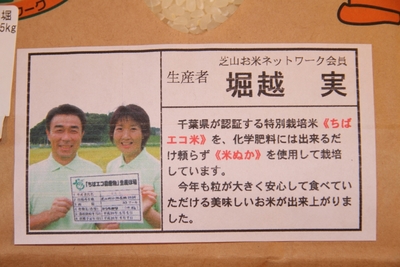 ワーク
堀
5kg
芝山お米ネットワーク会員
生産者 堀越 実
千葉県が認証する特別栽培米《ちば
エコ米》を、化学肥料には出来るだ
け頼らず《米ぬか》を使用して栽培
しています。
今年も粒が大きく安心して食べてい
ただける美味しいお米が出来上がりま
した。
「ちばエコ農産物」生産ほ場